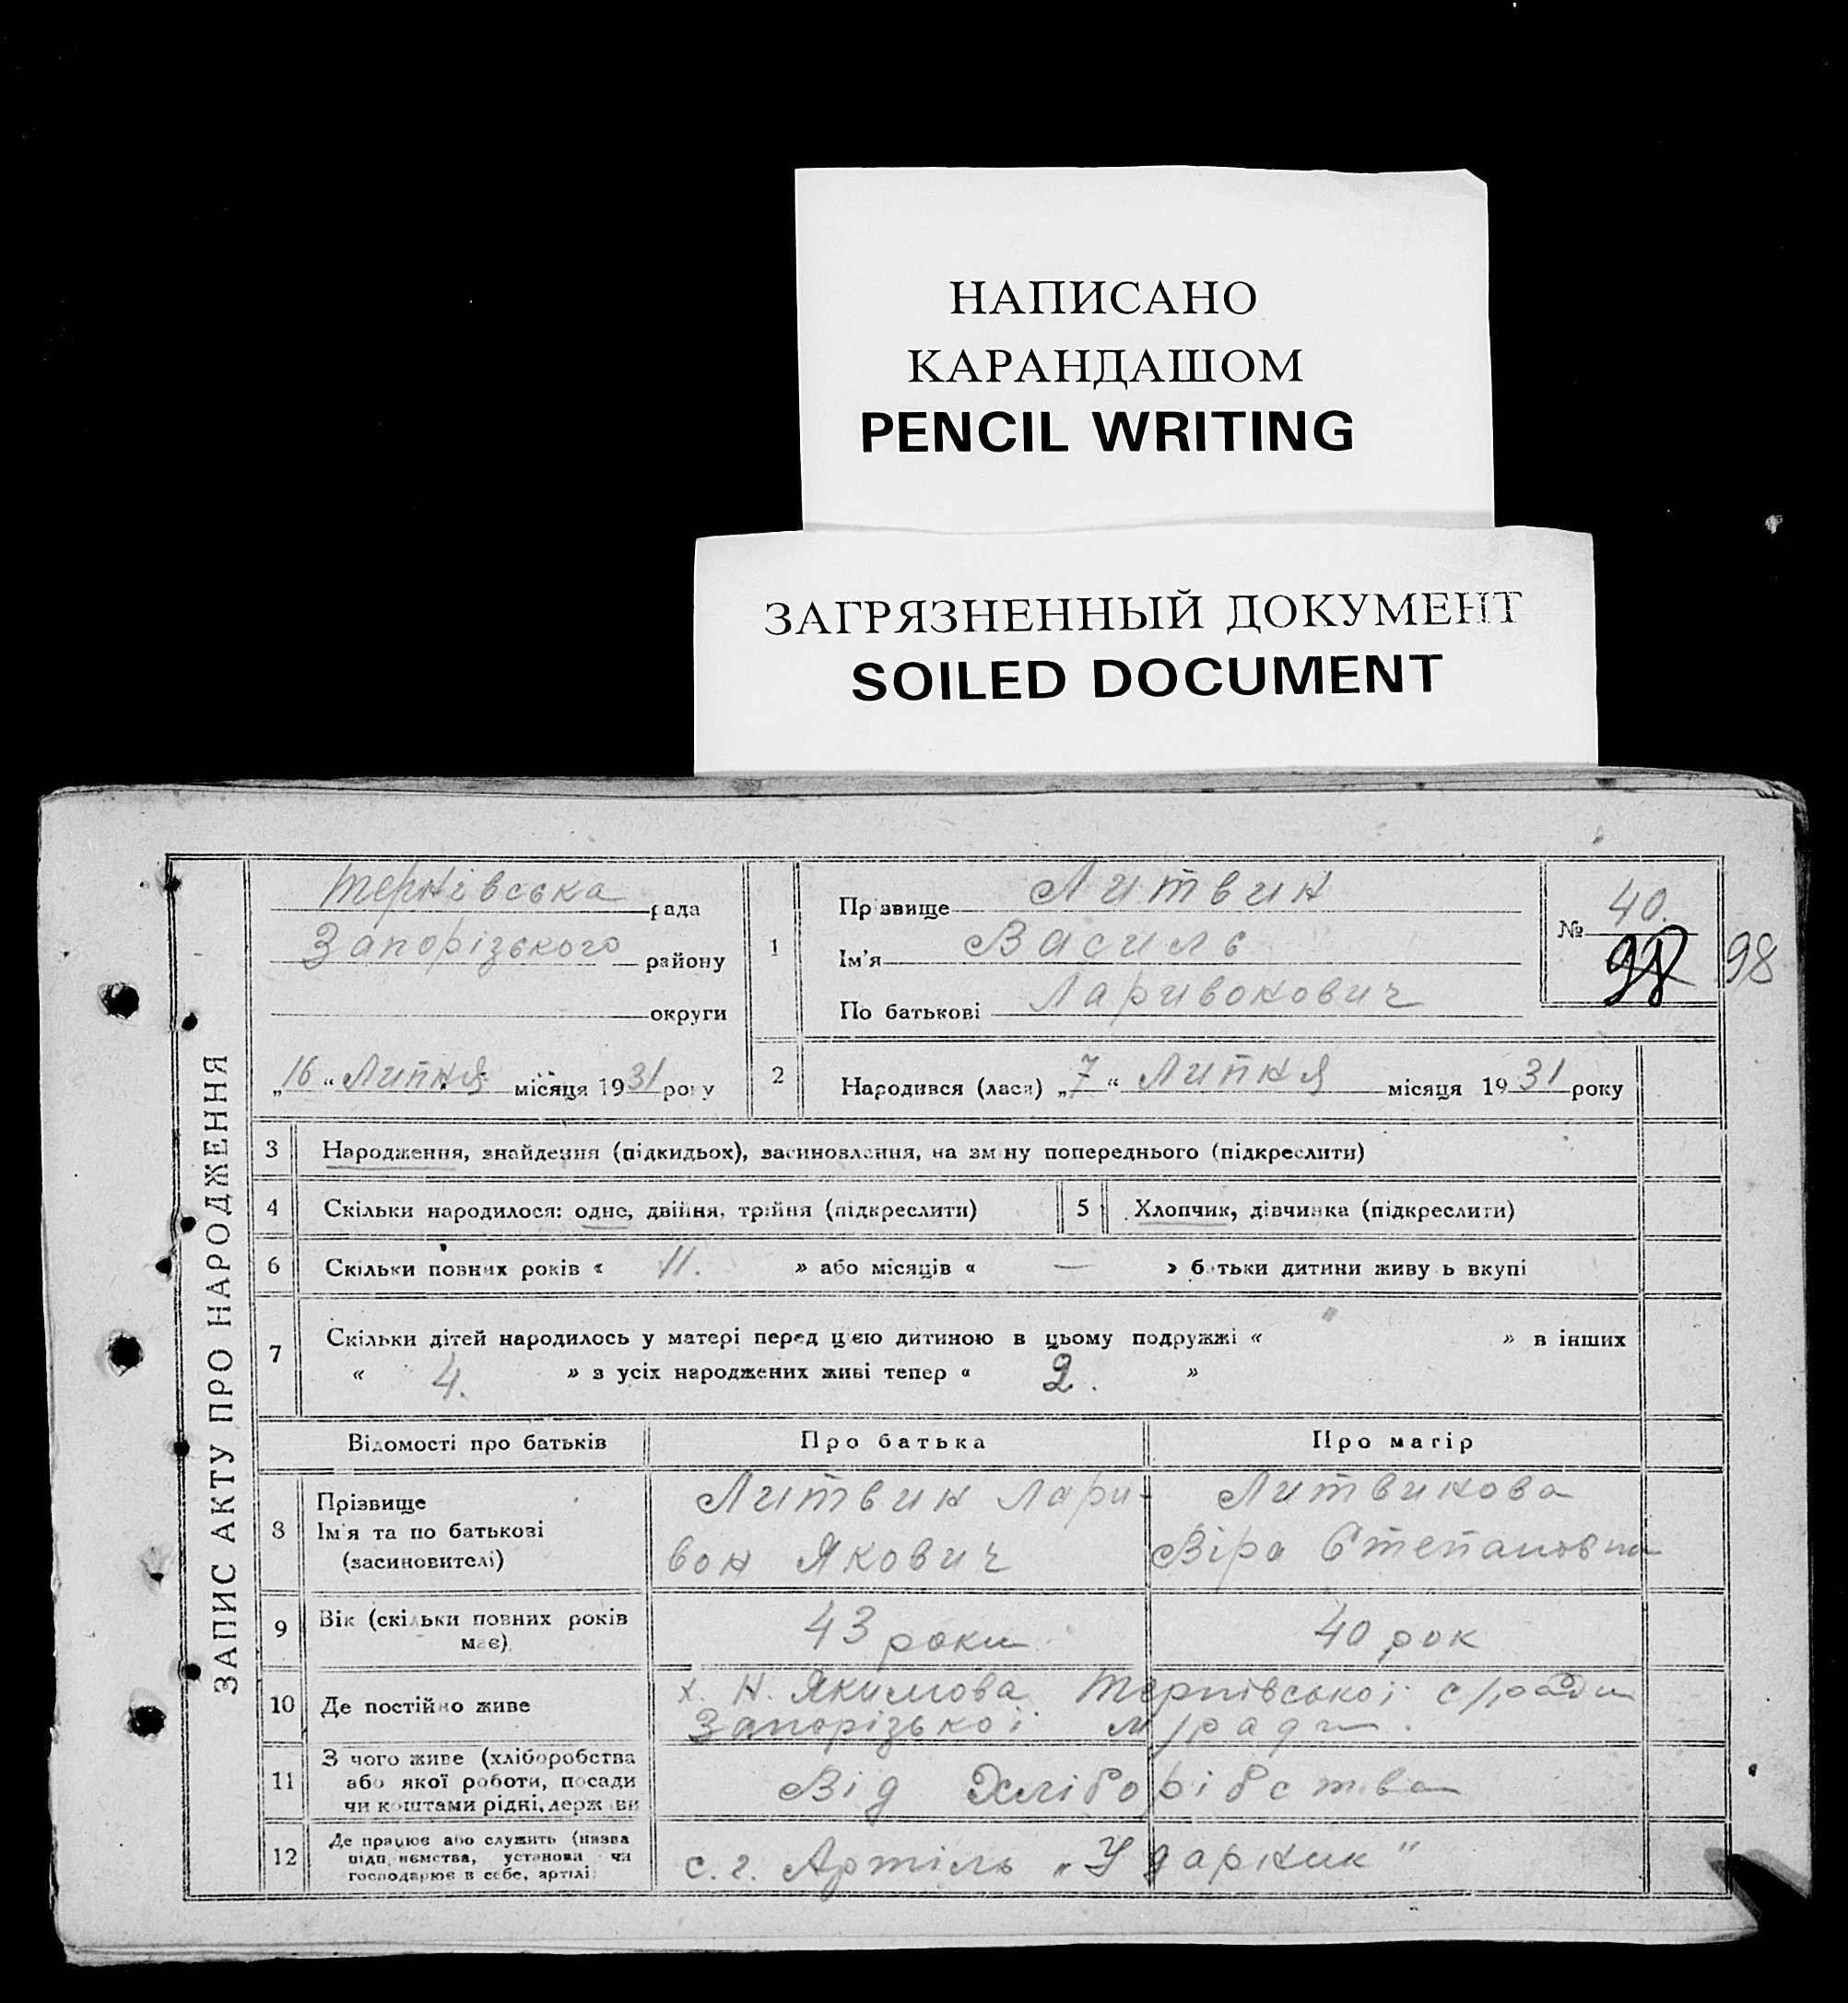 НАПИСАНО
КАРАНДАШОМ
PENCIL WRITING
ЗАГРЯЗНЕННЫЙ ДОКУМЕНТ
SOILED DOCUMENT
ЗАПИС АКТУ ПРО НАРОДЖЕННЯ
Тернівська рада
Запорізького району
округи
„16“ Липня місяця 1931 року
1
Прізвище Литвин
Ім'я Василь
По батькові Ларивонович
№ 40.
98 98
2 Народився (лася) „7“ Липня місяця 1931 року
3 Народження, знайдення (підкидьох), засиновлення, на зміну попереднього (підкреслити)
4 Скільки народилося: одне, двійня, трійня (підкреслити) 5 Хлопчик, дівчинка (підкреслити)
6 Скільки повних років « 11. » або місяців « — » батьки дитини живуть вкупі
7 Скільки дітей народилось у матері перед цією дитиною в цьому подружжі « " » в інших
« 4. » з усіх народжених живі тепер « 2. »
Відомості про батьків Про батька Про матір
8 Прізвище
Ім'я та по батькові
(засиновителі)
Литвин Лари-
вон Якович
Литвинова
Віра Степановна
9 Вік (скільки повних років
має)
43 роки 40 рок
10 Де постійно живе
х. Н. Якимова Тернівської с/ради
Запорізької м/ради.
11 З чого живе (хліборобства
або якої роботи, посади
чи коштами рідні, держави
Від Хліборібства
12 Де працює або служить (назва
підприємства, установи чи
господарює в себе, артілі)
с. г. Артіль „Ударник"